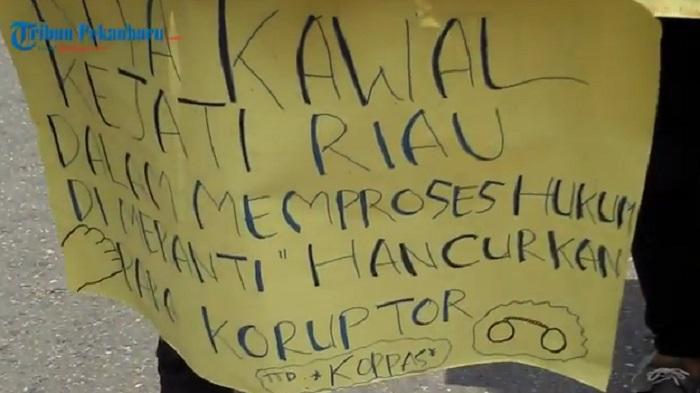 Tribun Pekanbaru
KITA KAWAL
KEJATI RIAU
DALAM MEMPROSES HUKUM
DI MERANTI "HANCURKAN
PARA KORUPTOR
TTD. *KOPPAS*